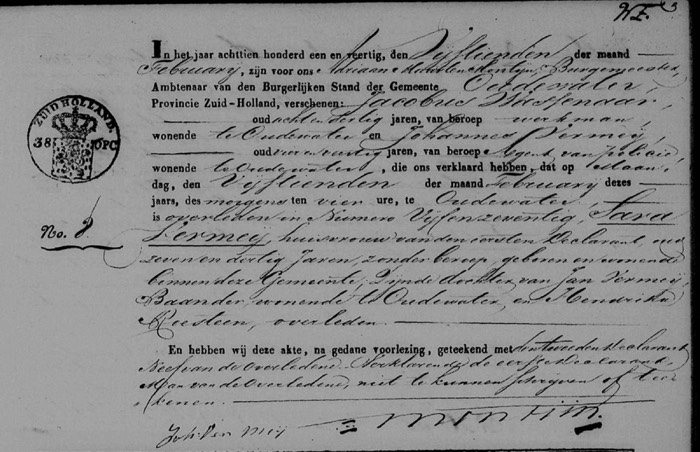 In het jaar achttien honderd een en veertig, den Vijftienden der maand
February, zijn voor ons Adriaan Maarten Montijn, Burgemeester,
Ambtenaar van den Burgerlijken Stand der Gemeente Oudewater,
Provincie Zuid-Holland, verschenen: Jacobus Wassenaar,
oud acht en dertig jaren, van beroep werkman,
wonende te Oudewater en Johannes Vermeij
oud vier en veertig jaren, van beroep Agent van policie,
wonende te Oudewater, die ons verklaard hebben, dat op Maan-
dag, den Vijftienden der maand February dezes
jaars, des morgens ten vier ure, te Oudewater,
is overleden in Numero Vijf en zeventig, Sara
Vermeij, huisvrouw van den eersten Declarant, oud
zeven en dertig Jaren, zonder beroep, geboren en wonende
binnen deze Gemeente, Zijnde dochter van Jan Vermeij,
Baander, wonende te Oudewater, en Hendrika
overleden.
En hebben wij deze akte, na gedane voorlezing, geteekend met den tweeden Declarant
Neef van de Overledene. Verklarende de eerste Declarant
Man van de Overledene, niet te kunnen schrijven of tee-
kenen.
Joh: Ver meij Montijn
ZUID HOLLAND.
38 OPC
No. 8